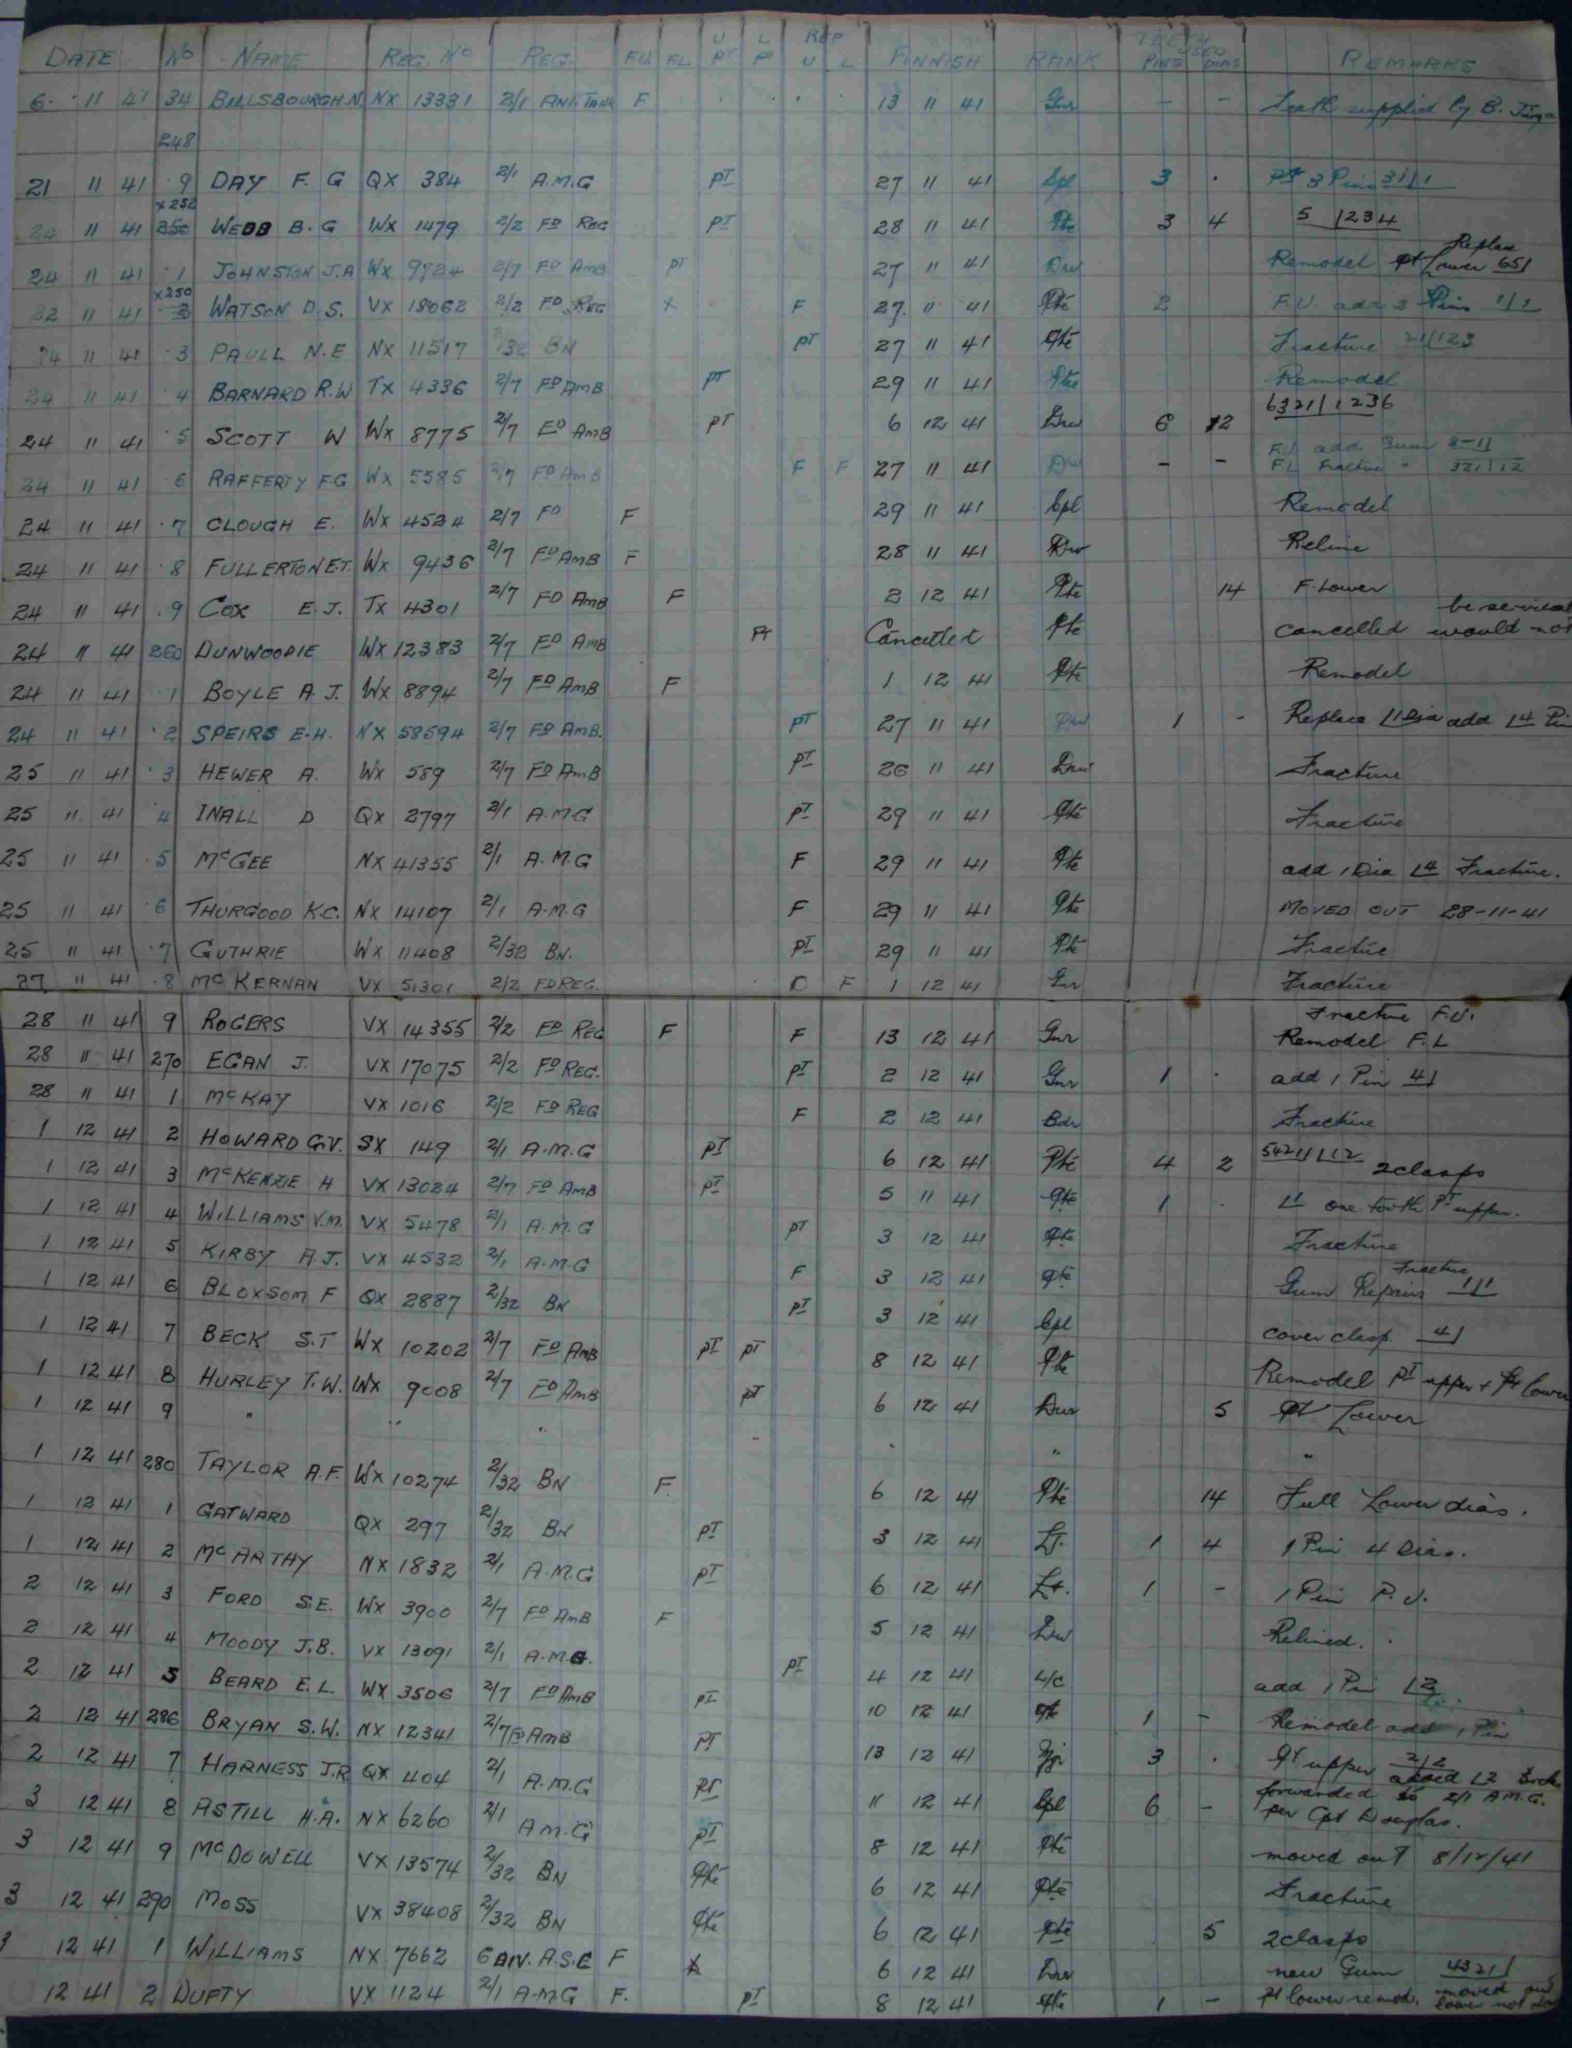 DATE No NAME REG. No REG. FU FL U PT L P REP U L FINNISH RANK TEETH USED PINS DIAS REMARKS
6 11 41 34 BILLSBOURGH. N. NX 13331 2/1 ANT. TANK F 13 11 41 Gnr - - Teeth supplied by B.
248
21 11 41 9 DAY F. G QX 384 2/1 A.M.G PT 27 11 41 Cpl 3 PT 3 Pins
24 11 41 x 252 250 WEBB B. G WX 1479 2/2 FD REG PT 28 11 41 Pte 3 4 5 1234
24 11 41 1 JOHNSTON J.A WX 9724 2/7 FD AMB PT 27 11 41 Drv Remodel PT Lower Replace 65
22 11 41 x 250 2 WATSON D. S. VX 18062 2/2 FD REG X F 27 11 41 Pte 2 F.U. add 2 Pins 1/1
24 11 41 3 PAULL N. E NX 11517 2/32 BN PT 27 11 41 Pte Fracture 21/123
24 11 41 4 BARNARD R.W TX 4336 2/7 FD AMB PT 29 11 41 Pte Remodel
24 11 41 5 SCOTT W WX 8775 2/7 FD AMB PT 6 12 41 Drv 6 2 6321/1236
24 11 41 6 RAFFERTY F.G WX 5585 2/7 FD AMB F F 27 11 41 Drv - - F.U. add Gum
FL Fracture " 321/12
24 11 41 7 CLOUGH E. WX 4524 2/7 FD F 29 11 41 Cpl Remodel
24 11 41 8 FULLERTON E.T. WX 9436 2/7 FD AMB F 28 11 41 Drv Reline
24 11 41 9 COX E. J. TX 4301 2/7 FD AMB F 2 12 41 Pte 14 F. Lower
24 11 41 260 DUNWOODIE WX 12383 2/7 FD AMB PT Cancelled Pte cancelled would not be
24 11 41 1 BOYLE A. J. WX 8894 2/7 FD AMB F 1 12 41 Pte Remodel
24 11 41 2 SPEIRS E. H. NX 58594 2/7 FD AMB. PT 27 11 41 Drv 1 - Replace 1 Dia add 4 Pin
25 11 41 3 HEWER A. WX 589 2/7 FD AMB PT 26 11 41 Drv Fracture
25 11 41 4 INALL D QX 2797 2/1 A.M.G PT 29 11 41 Pte Fracture
25 11 41 5 McGEE NX 41355 2/1 A.M.G F 29 11 41 Pte add 1 Dia 4 Fracture.
25 11 41 6 THURGOOD K.C. NX 14107 2/1 A.M.G F 29 11 41 Pte MOVED OUT 28-11-41
25 11 41 7 GUTHRIE WX 11408 2/32 BN. PT 29 11 41 Pte Fracture
27 11 41 8 McKERNAN VX 51301 2/2 FD REG. F 1 12 41 Gnr Fracture
28 11 41 9 ROGERS VX 14355 2/2 FD REG F F 13 12 41 Gnr Fracture F.U.
Remodel F. L
28 11 41 270 EGAN J. VX 17075 2/2 FD REG. PT 2 12 41 Gnr 1 add 1 Pin 4
28 11 41 1 McKAY VX 1016 2/2 FD REG F 2 12 41 Bdr Fracture
1 12 41 2 HOWARD G.V. SX 149 2/1 A.M.G PT 6 12 41 Pte 4 2 5421/12 2 clasps
1 12 41 3 McKENZIE H VX 13024 2/7 FD AMB PT 5 11 41 Pte 1 1 one tooth PT upper.
1 12 41 4 WILLIAMS V.M. VX 5478 2/1 A.M.G PT 3 12 41 Pte Fracture
1 12 41 5 KIRBY A. J. VX 4532 2/1 A.M.G F 3 12 41 Pte Gum Repairs Fracture 1/1
1 12 41 6 BLOXSOM F QX 2887 2/32 BN PT 3 12 41 Cpl cover clasp 4
1 12 41 7 BECK S.T WX 10202 2/7 FD AMB PT PT 8 12 41 Pte Remodel PT upper + PT lower
1 12 41 8 HURLEY T. W. WX 9008 2/7 FD AMB PT 6 12 41 Drv 5 PT Lower
1 12 41 9 " " " " " "
1 12 41 280 TAYLOR A.F. WX 10274 2/32 BN F. 6 12 41 Pte 14 Full Lower dias.
1 12 41 1 GATWARD QX 297 2/32 BN PT 3 12 41 LT. 1 4 1 Pin 4 Dias.
1 12 41 2 McARTHY NX 1832 2/1 A.M.G PT 6 12 41 Lt. 1 - 1 Pin P. U.
2 12 41 3 FORD S.E. WX 3900 2/7 FD AMB F 5 12 41 Drv Relined.
2 12 41 4 MOODY J.B. VX 13091 2/1 A.M.G. PT 4 12 41 L/C add 1 Pin 2
2 12 41 5 BEARD E. L. WX 3506 2/7 FD AMB PT 10 12 41 1 - Remodel add 1 Pin
2 12 41 286 BRYAN S.W. NX 12341 2/7 FD AMB PT 13 12 41 3 PT upper 2/2
2 12 41 7 HARNESS J.R QX 404 2/1 A.M.G PT 11 12 41 Cpl 6 - forwarded to 2/1 A.M.G.
per Cpt Douglas.
3 12 41 8 ASTILL H.A. NX 6260 2/1 A.M.G PT 8 12 41 Pte moved out 8/12/41
3 12 41 9 McDOWELL VX 13574 2/32 BN Pte 6 12 41 Pte Fracture
3 12 41 290 MOSS VX 38408 2/32 BN Pte 6 12 41 Pte 5 2 clasps
3 12 41 1 WILLIAMS NX 7662 6 DIV. A.S.C F 6 12 41 Drv new Gum 4321
12 41 2 DUFTY VX 1124 2/1 A.M.G F. PT 8 12 41 Pte 1 - PT lower remod. moved out
lower not